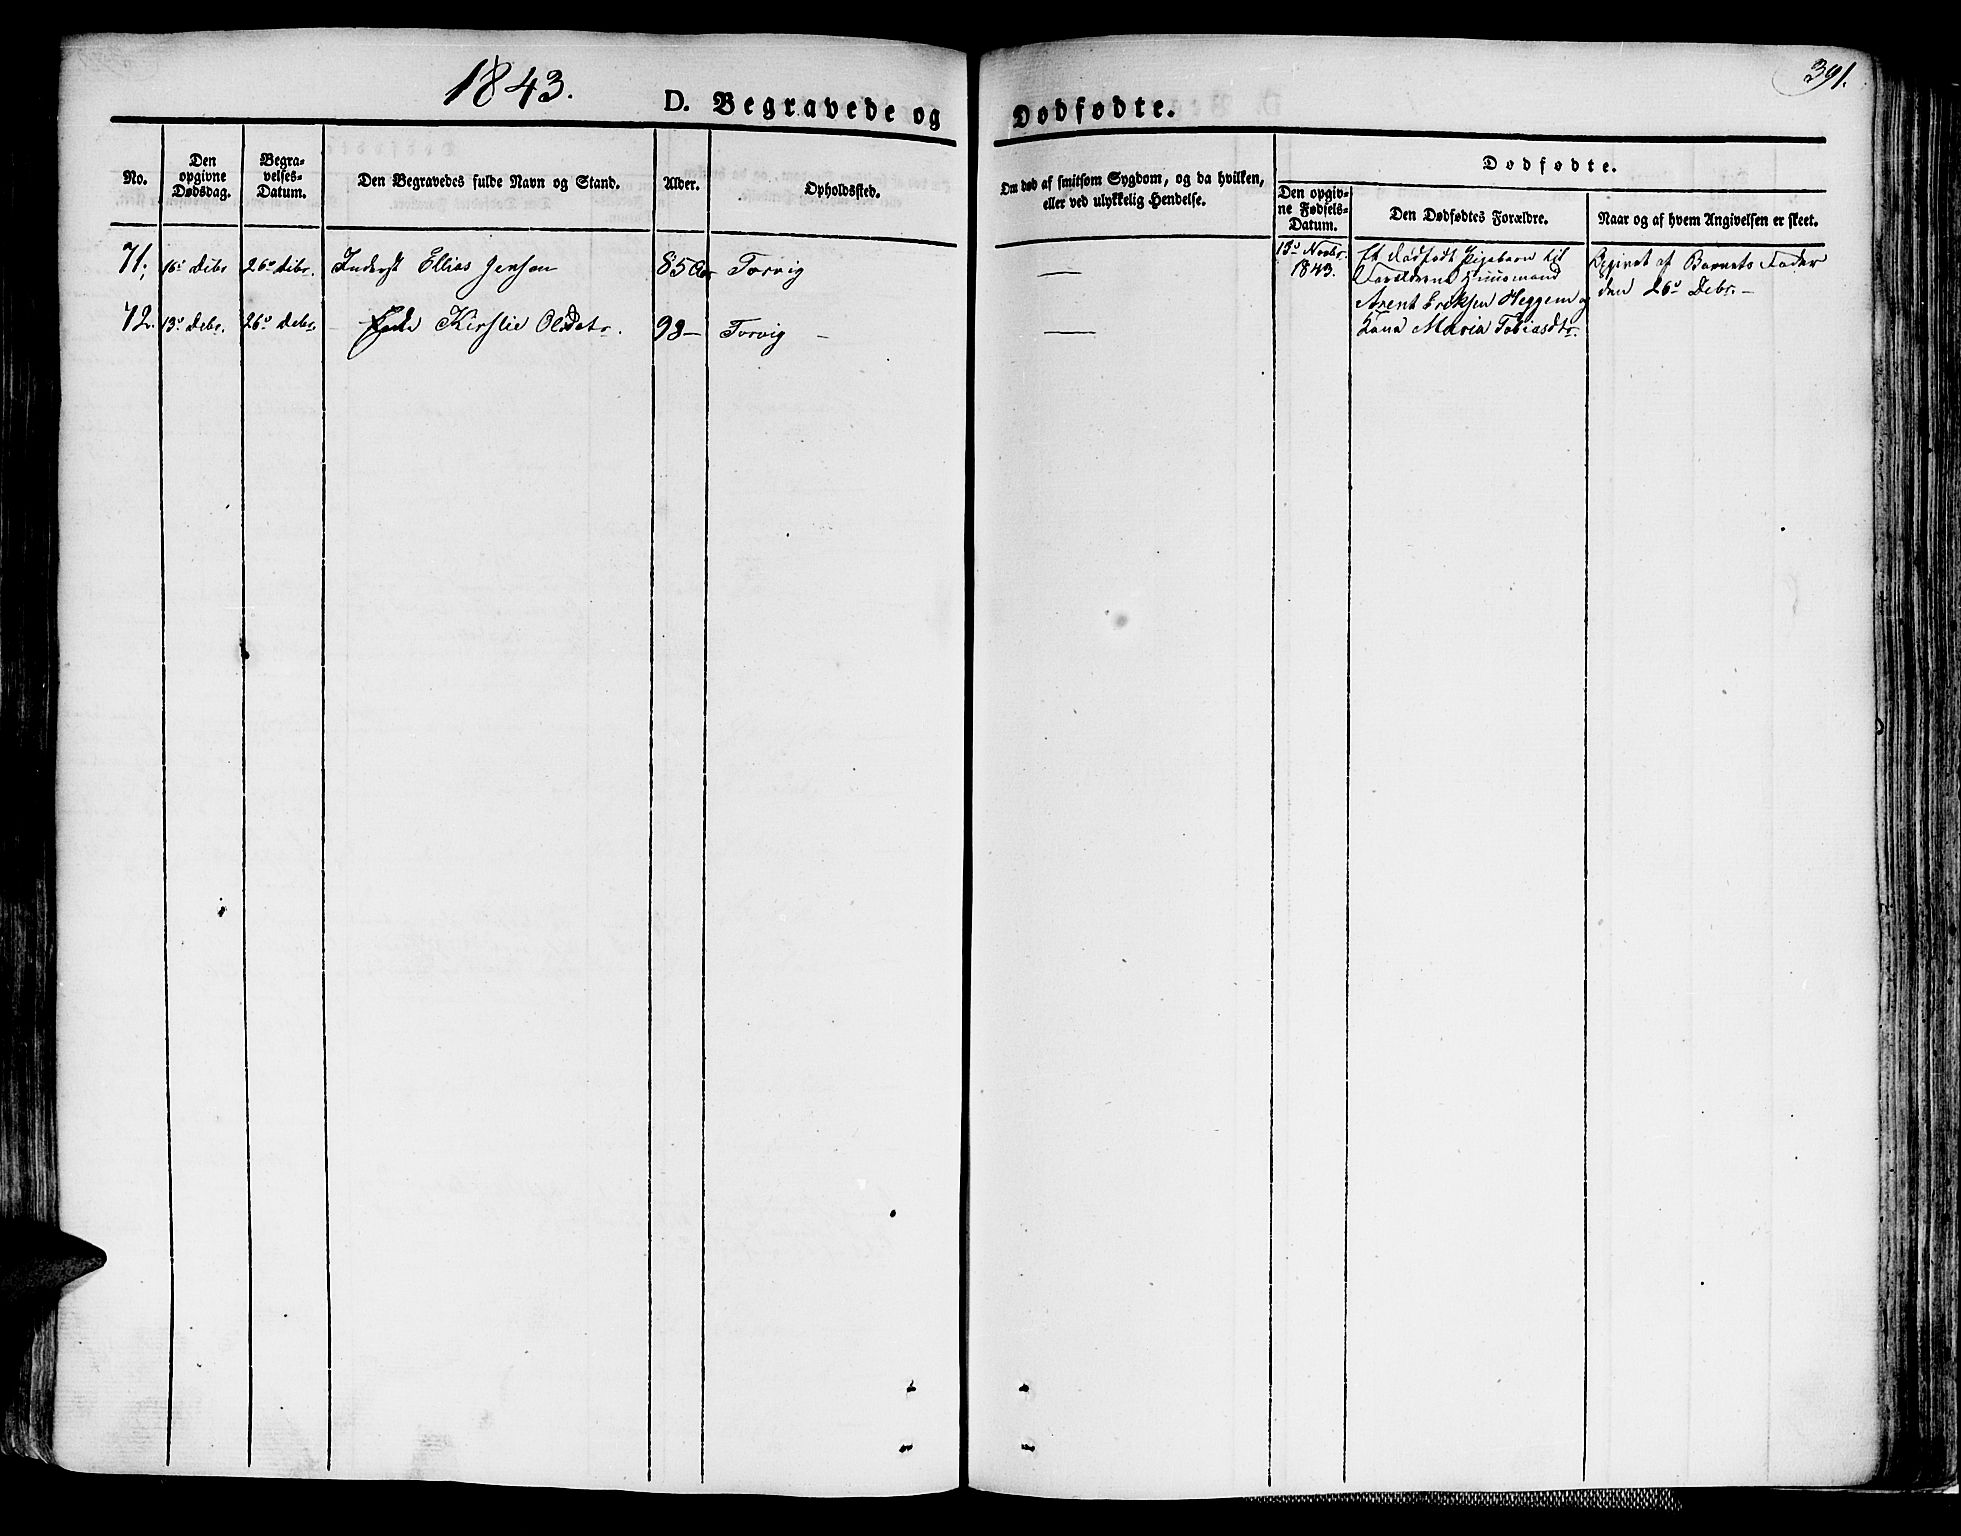 1843.
391.
D. Begravede og Dødfødte.
No.
Den opgivne Dødsdag.
Begravelses-Datum.
Den Begravedes fulde Navn og Stand.
Alder.
Opholdssted.
Om død af smitsom Sygdom, og da hvilken,
eller ved ulykkelig Hendelse.
Dødfødte.
Den opgivne Fødsels-Datum.
Den Dødfødtes Forældre.
Naar og af hvem Angivelsen er skeet.
71. 16° Debr 26° Debr. Inderst Ellias Jensen 85 Aar Torvig —
72. 13° Debr. 26° Debr. Kirstie Olsdatr. 98 — Torvig — —
13° Novbr. 1843.
Et dødfødt Pigebarn til
Forældrene Huusmand
Arent Eriksen Heggem og
Kona Maria Tobiasdtr.
Begivet af Barnets Fader
den 26° Debr. —